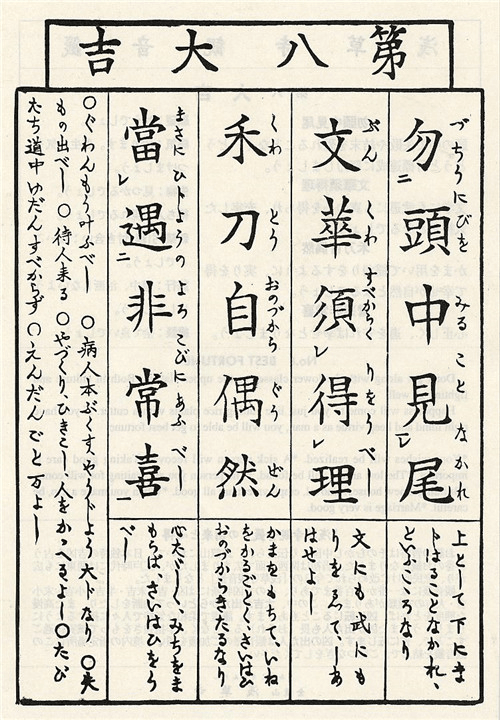 第八大吉
づちうにびを みること なかれ
勿頭中見尾
上として下にま
トはるゝことなかれ、
といふこゝろなり
ぶん くわ すべからく りをうべし
文華須得理
文にも武にも
りをゑて、あ
はせよ
くわ とう おのづから ぐう ぜん
禾刀自偶然
かまをもちて、いね
をかるごとく、さいはひ
おのづからきたるなり
まさに ひじやうの よろこびにあふ べし
當遇非常喜
心たゞしく、みちをま
もらば、さいはひをう
べし
〇ぐわんもう叶ふべし 〇病人本ぶくす、やうじよう大トなり 〇失
もの出べし 〇待人来る 〇やづくり、ひきこし、人をかゝへるよし 〇たび
たち道中ゆだんすべからず 〇えんだんごと万よし